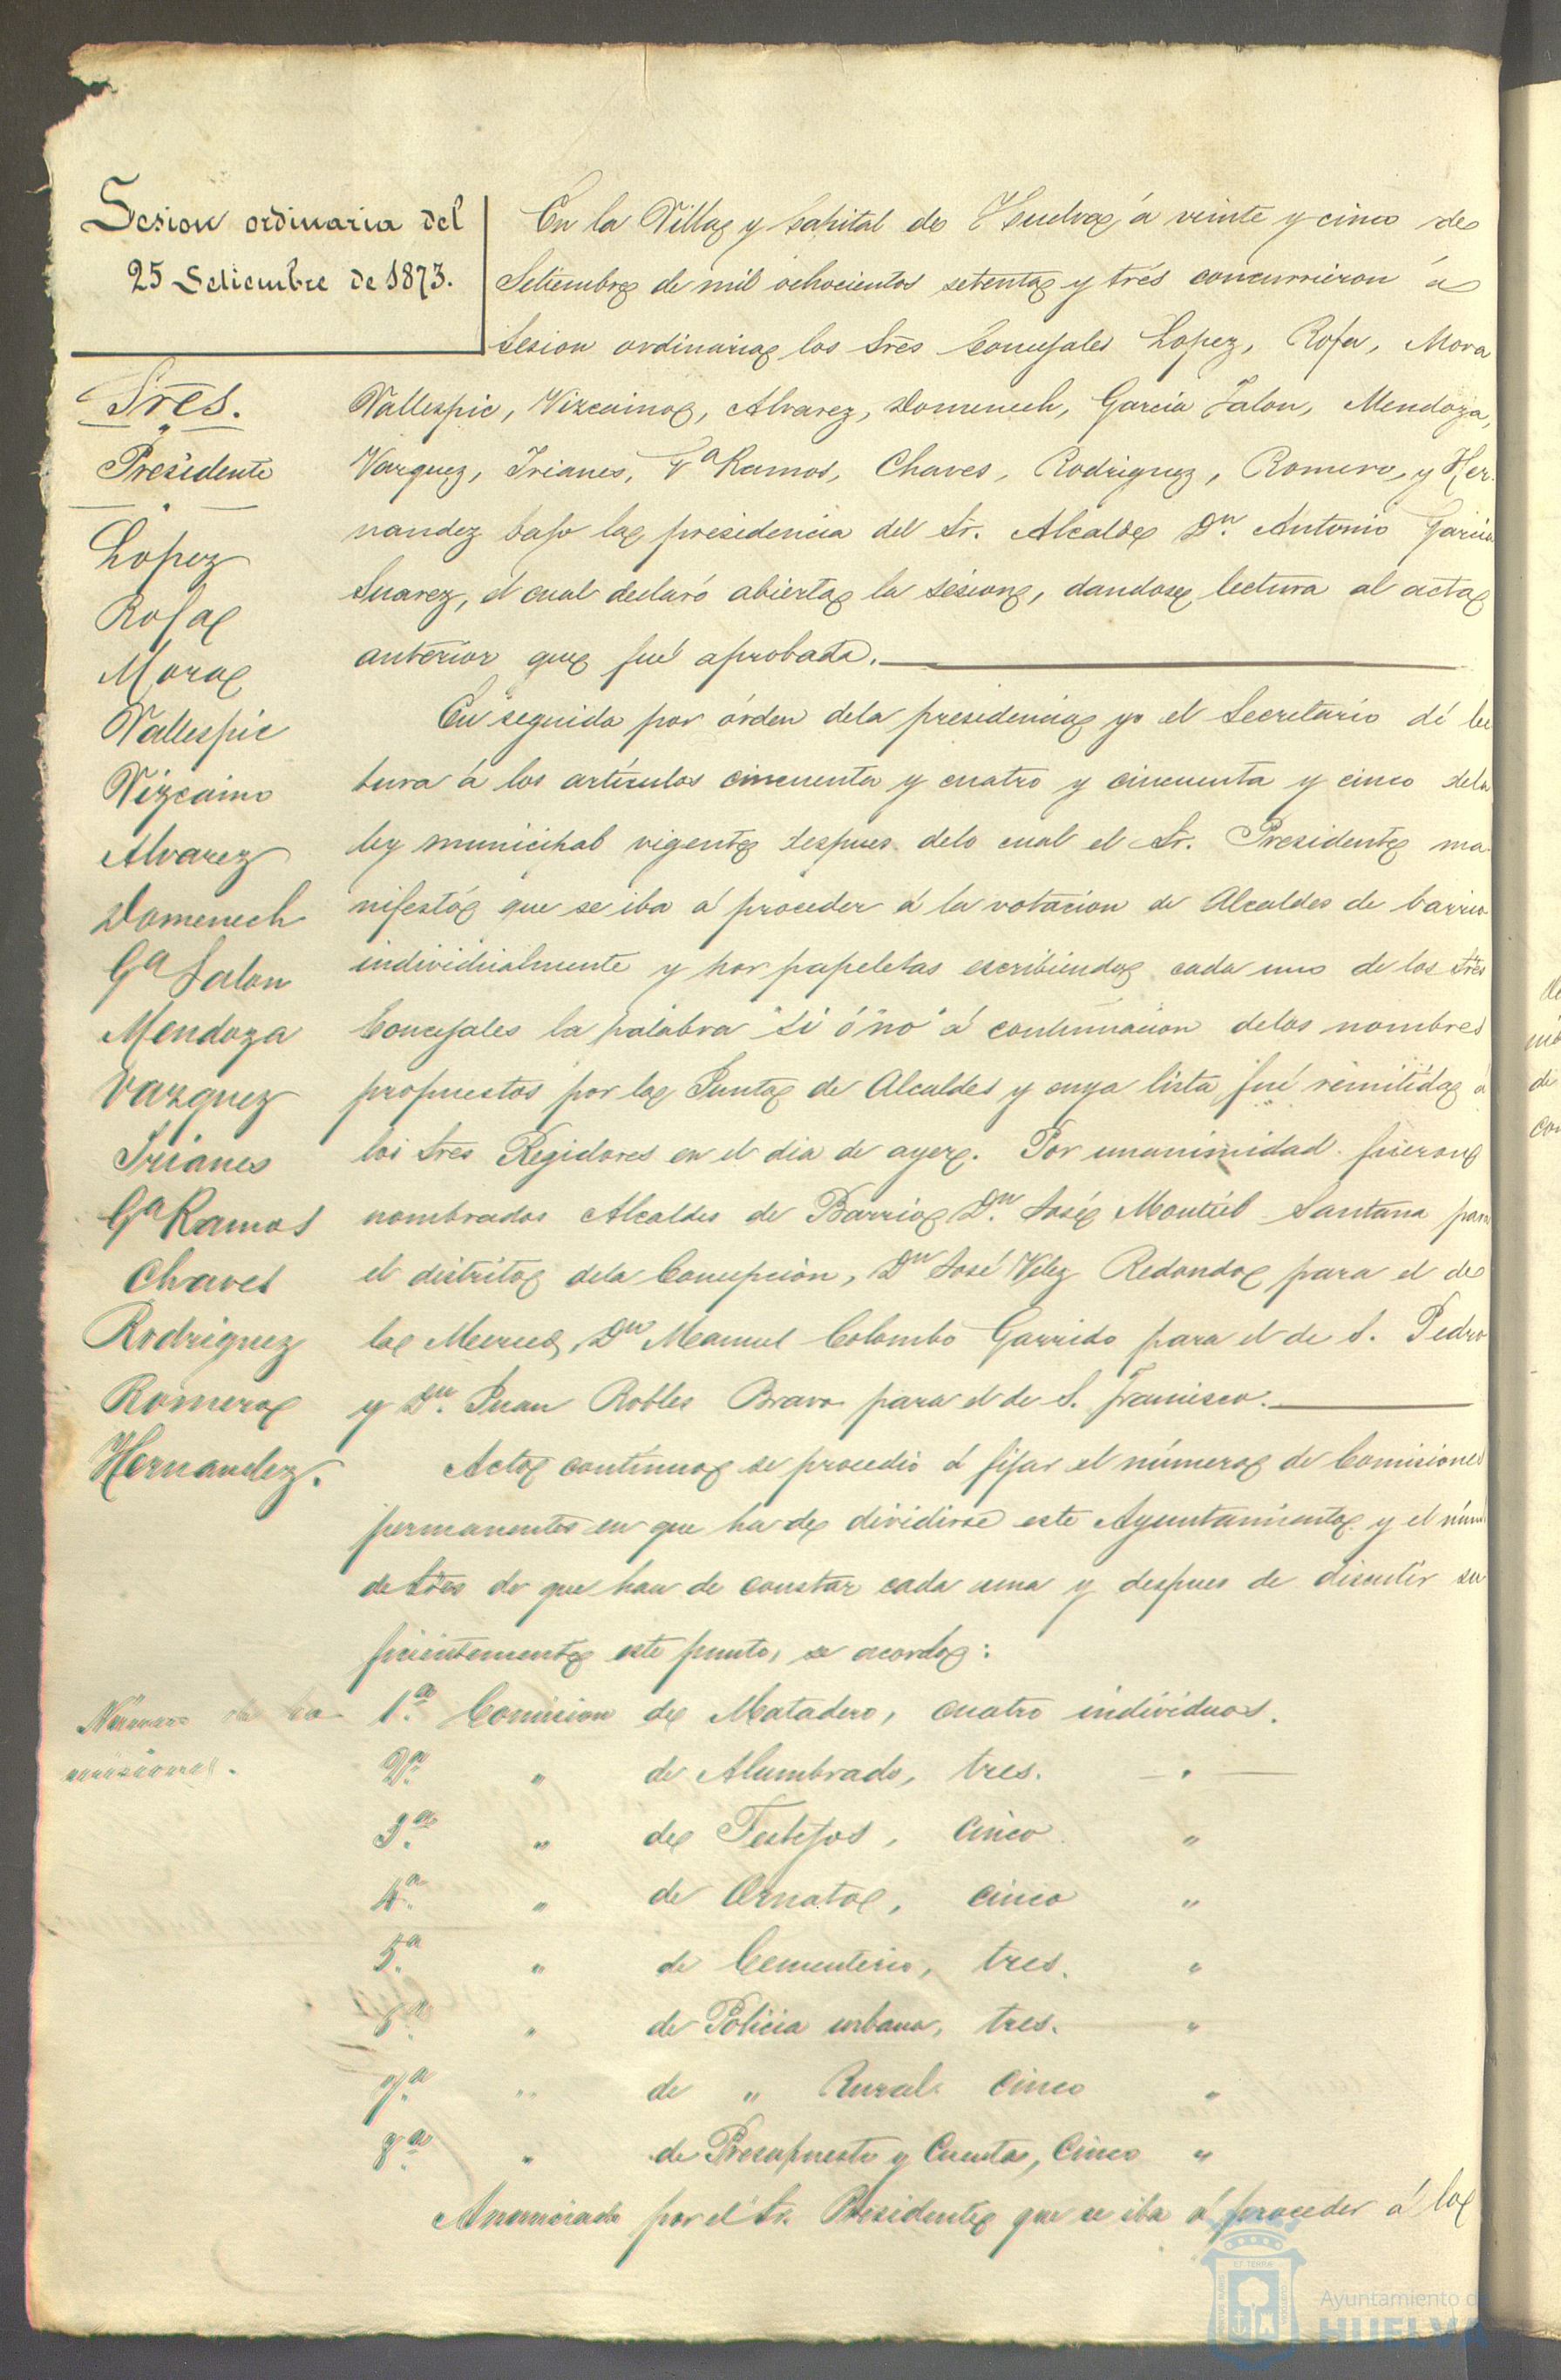 Sesion ordinaria del
25 Setiembre de 1873.
Sres.
Presidente
Lopez
Rofa
Mora
Vallespic
Vizcaino
Alvarez
Domenech
Gª Jalon
Mendoza
Vazquez
Trianes
Gª Ramos
Chaves
Rodriguez
Romero
Hernandez.
En la Villa y Capital de Huelva á veinte y cinco de
Setiembre de mil ochocientos setenta y trés concurrieron á
sesion ordinaria los Sres Concejales Lopez, Rofa, Mora
Vallespic, Vizcaino, Alvarez, Domenech, Garcia Jalon, Mendoza,
Vazquez, Trianes, Gª Ramos, Chaves, Rodriguez, Romero, y Her-
nandez bajo la presidencia del Sr. Alcalde Dn. Antonio Garcia
Suarez, el cual declaró abierta la sesion, dandose lectura al acta
anterior que fué aprobada.
En seguida por órden dela presidencia yo el Secretario dí lec
tura á los artículos cincuenta y cuatro y cincuenta y cinco dela
ley municipal vigente despues delo cual el Sr. Presidente ma-
nifestó que se iba á proceder á la votacion de Alcaldes de barrio
individualmente y por papeletas escribiendo cada uno de los Sres
Concejales la palabra "si" ó "no" á continuacion delos nombres
propuestos por la Junta de Alcaldes y cuya lista fué remitida á
los Sres Regidores en el dia de ayer. Por unanimidad fueron
nombrados Alcaldes de Barrio Dn. José Montiel Santana para
el distrito dela Concepcion, Dn José Velez Redondo para el de
la Merced, Dn Manuel Colombo Garrido para el de S. Pedro
y Dn. Juan Robles Bravo para el de S. Francisco.
Acto continuo se procedió á fijar el número de Comisiones
permanentes en que ha de dividirse este Ayuntamiento y el núm
de Sres de que han de constar cada una y despues de discutir su
ficientemente este punto, se acordo:
Número de Co-
misiones.
1ª. Comision de Matadero, cuatro individuos.
2ª. " de Alumbrado, tres. — " —
3ª. " de Festejos, cinco "
4ª. " de Ornato, cinco "
5ª. " de Cementerio, tres. "
6ª. " de Policia urbana, tres. "
7ª. " de " Rural cinco "
8ª. " de Presupuesto y Cuenta, Cinco "
Anunciado por el Sr. Presidente que se iba á proceder á la
Ayuntamiento de
HUELVA